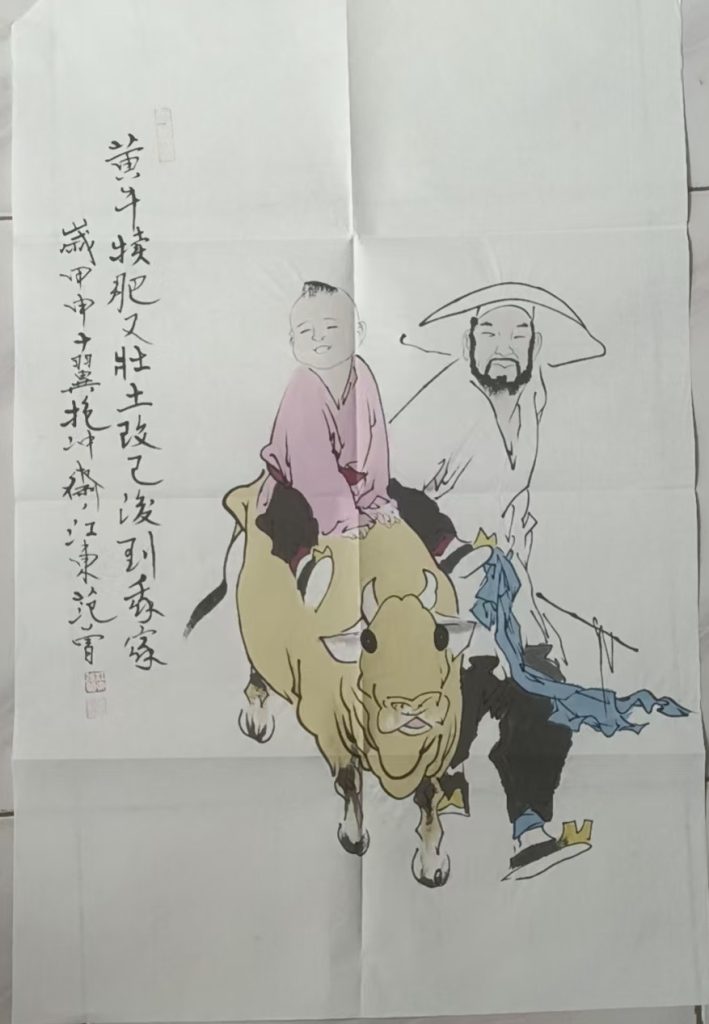 黄牛犊肥又壮土改已後到我家
歲甲申十翼抱冲齋江東范曾